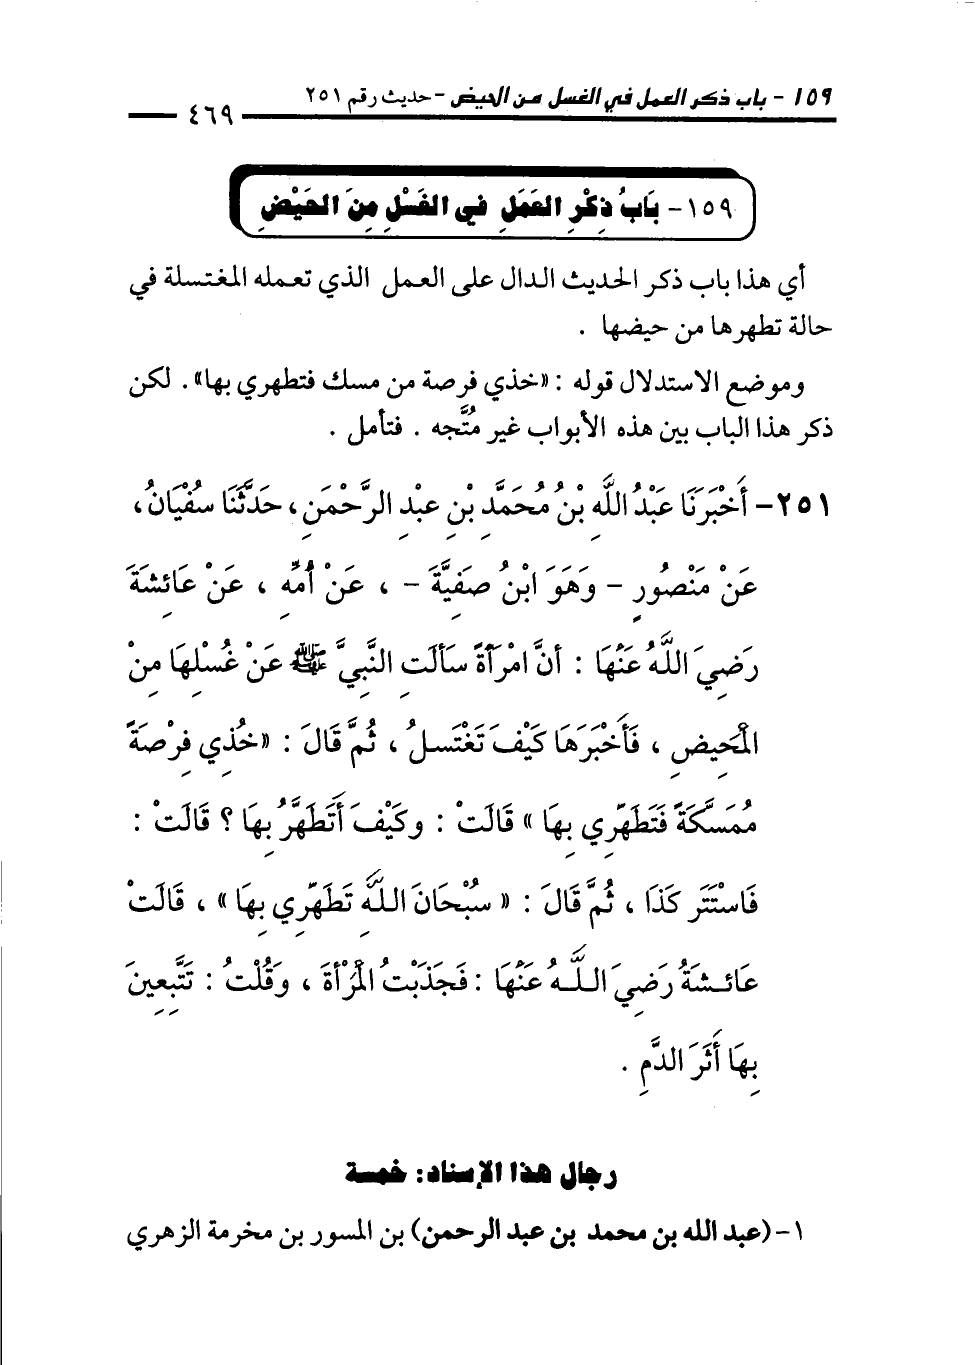 ١٥٩ - باب ذكر العمل في الغسل من الحيض - حديث رقم ٢٥١
٤٦٩
١٥٩- بَابُ ذِكْرِ العَمَلِ في الغَسْلِ مِنَ الحَيْضِ
أي هذا باب ذكر الحديث الدال على العمل الذي تعمله المغتسلة في
حالة تطهرها من حيضها .
وموضع الاستدلال قوله : «خذي فرصة من مسك فتطهري بها» . لكن
ذكر هذا الباب بين هذه الأبواب غير مُتَّجه . فتأمل .
٢٥١- أَخْبَرَنَا عَبْدُ اللَّهِ بْنُ مُحَمَّدِ بْنِ عبْدِ الرَّحْمَنِ، حَدَّثَنَا سفْيَانُ،
عَنْ مَنْصُورٍ - وَهَوَ ابْنُ صفِيَّةَ - ، عَنْ أُمِّهِ ، عَنْ عَائشَةَ
رَضِيَ اللَّهُ عَنْهَا : أنَّ امْرَأةً سَألَتِ النَّبِيَّ ﷺ عَنْ غُسْلِهَا مِنْ
الْمَحِيضِ ، فَأَخْبَرَهَا كَيْفَ تَغْتَسلُ ، ثُمَّ قَالَ : «خُذِي فِرْصَةً
مُمَسَّكَةً فَتَطَهَّرِي بِهَا» قَالَتْ : وكَيْفَ أَتَطَهَّرُ بِهَا ؟ قَالَتْ :
فَاسْتَتَر كَذَا ، ثُمَّ قَالَ : « سبْحَانَ اللَّهِ تَطَهَّرِي بِهَا» ، قَالَتْ
عَائشَةُ رَضِيَ اللَّهُ عَنْهَا : فَجَذَبْتُ الْمَرْأةَ ، وَقُلْتُ : تَتَّبِعِينَ
بِهَا أَثَرَ الدَّمِ .
رجال هذا الإسناد: خمسة
١- (عبد الله بن محمد بن عبد الرحمن) بن المسور بن مخرمة الزهري